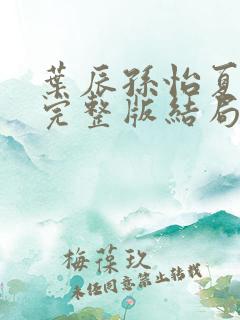 葉辰孫怡夏
完整版結局
梅葆玖
未经同意禁止转载